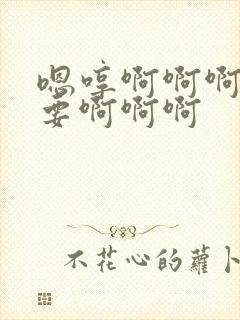 嗯哼啊啊啊
要啊啊啊
不花心的蘿卜